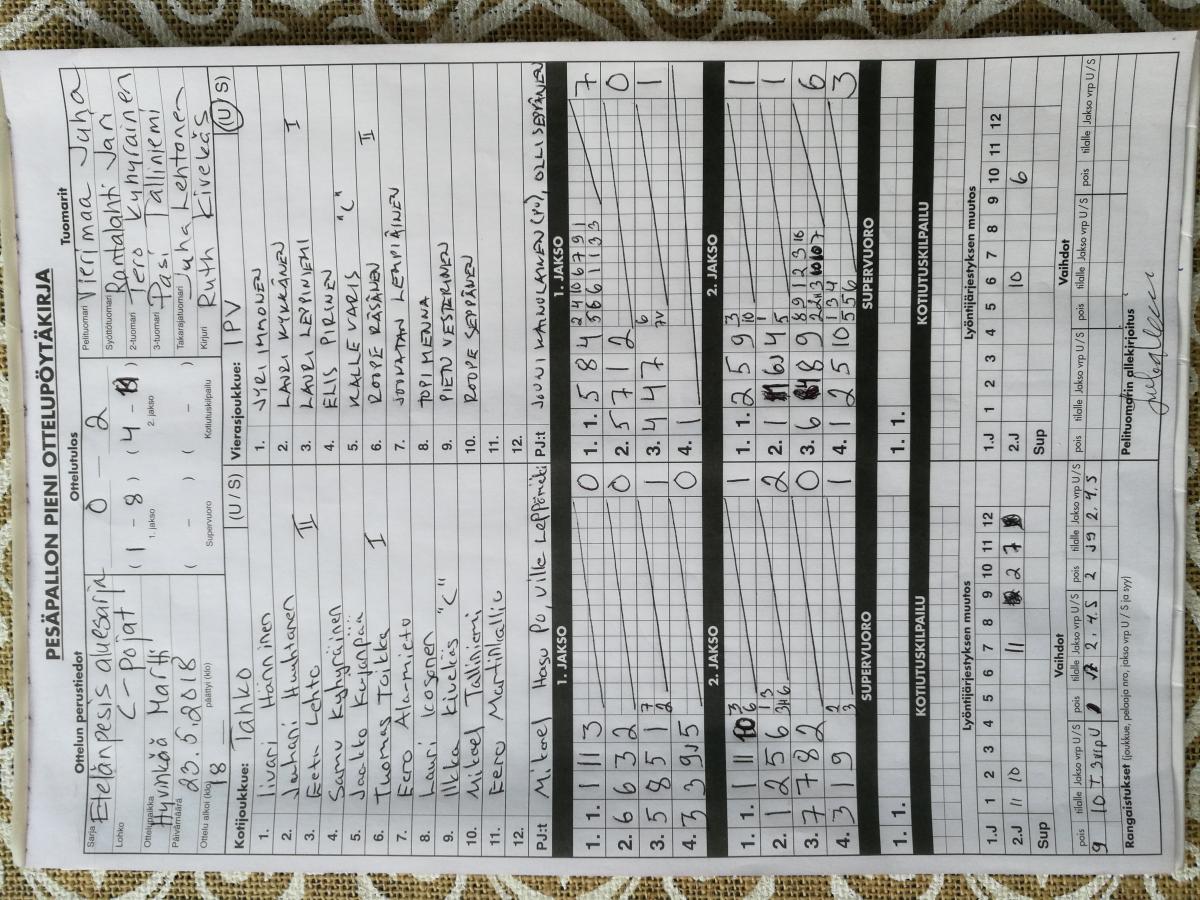 PESÄPALLON PIENI OTTELUPÖYTÄKIRJA
Ottelun perustiedot
Ottelutulos
Tuomarit
Sarja Etelänpesis aluesarja
Lohko C-pojat
Ottelupaikka Hyvinkää Martti
Päivämäärä 23.5.2018
Ottelu alkoi (klo) 18
päättyi (klo)
0 – 2
( 1 - 8 ) ( 4 - )
1. jakso 2. jakso
( - ) ( - )
Supervuoro Kotiutuskilpailu
Pelituomari Vierimaa Juha
Syöttötuomari Rantalahti Jari
2-tuomari Tero Kyhyräinen
3-tuomari Pasi Talliniemi
Takarajatuomari Juha Lehtonen
Kirjuri Ruth Kivekäs
Kotijoukkue: Tahko (U / S)
1. Iivari Hänninen
2. Juhani Huuhtanen
3. Eetu Lehto II
4. Samu Kyhyräinen
5. Jaakko Karjanpää
6. Tuomas Taikka I
7. Eero Ala-mieto
8. Lauri Kosonen
9. Ilkka Kivekäs "C"
10. Mikael Talliniemi
11. Eero Martinkallio
12.
PJ:t Mikael Hasu PJ, Ville Leppämäki
Vierasjoukkue: IPV (U / S)
1. JYRI IMMONEN
2. LAURI KUKKÄNEN
3. LAURI LEPPINIEMI I
4. ELIS PIRINEN
5. KALLE VARIS "C"
6. ROOPE RÄSÄNEN II
7. JOONATAN LEMPIÄINEN
8. TOPI MENNA
9. PIETU VESTERINEN
10. ROOPE SEPPÄNEN
11.
12.
PJ:t JOUNI KANULAINEN (PJ), OLLI SEPPÄNEN
1. JAKSO
1. 1. 1 11 3 0
2. 6 6 3 2 0
3. 5 8 5 1 7 2 1
4. 3 3 9 5 0
1. JAKSO
1. 1. 5 8 4 7
2. 5 7 1 2 0
3. 4 4 7 6 7V 1
4. 1
2. JAKSO
1. 1. 1 11 10 3 6 1
2. 1 2 5 6 2
3. 7 7 8 2 0
4. 3 1 9 2 3 1
2. JAKSO
1. 1. 2 5 9 3 10 1
2. 1 4 1 5 1
3. 6 8 9 6
4. 1 2 5 10 3
SUPERVUORO
1. 1.
SUPERVUORO
1. 1.
KOTIUTUSKILPAILU
KOTIUTUSKILPAILU
Lyöntijärjestyksen muutos
1 2 3 4 5 6 7 8 9 10 11 12
1.J
2.J 11 10 11 2 7
Sup
Lyöntijärjestyksen muutos
1 2 3 4 5 6 7 8 9 10 11 12
1.J
2.J 10 6
Sup
Vaihdot
pois tilalle Jakso vrp U / S pois tilalle Jakso vrp U / S pois tilalle Jakso vrp U / S
9 10 I 3vrp U 2. 4. S 2 J9 2. 4. S
Vaihdot
pois tilalle Jakso vrp U / S pois tilalle Jakso vrp U / S pois tilalle Jakso vrp U / S
Rangaistukset (joukkue, pelaaja nro, jakso vrp U / S ja syy)
Pelituomarin allekirjoitus